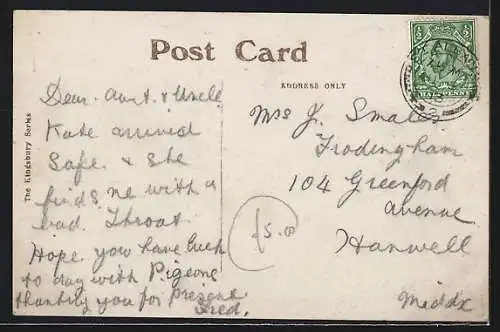 Post Card
ADDRESS ONLY
The Kingsbury Series
Dear Aunt & Uncle
Kate arrived
Safe. & She
finds me with a
bad Throat.
Hope you have luck
to day with Pigeons
thanking you for present
Fred.
Mrs J. Smaley
Frodingham
104 Greenford
avenue
Hanwell
Middx
HALF PENNY